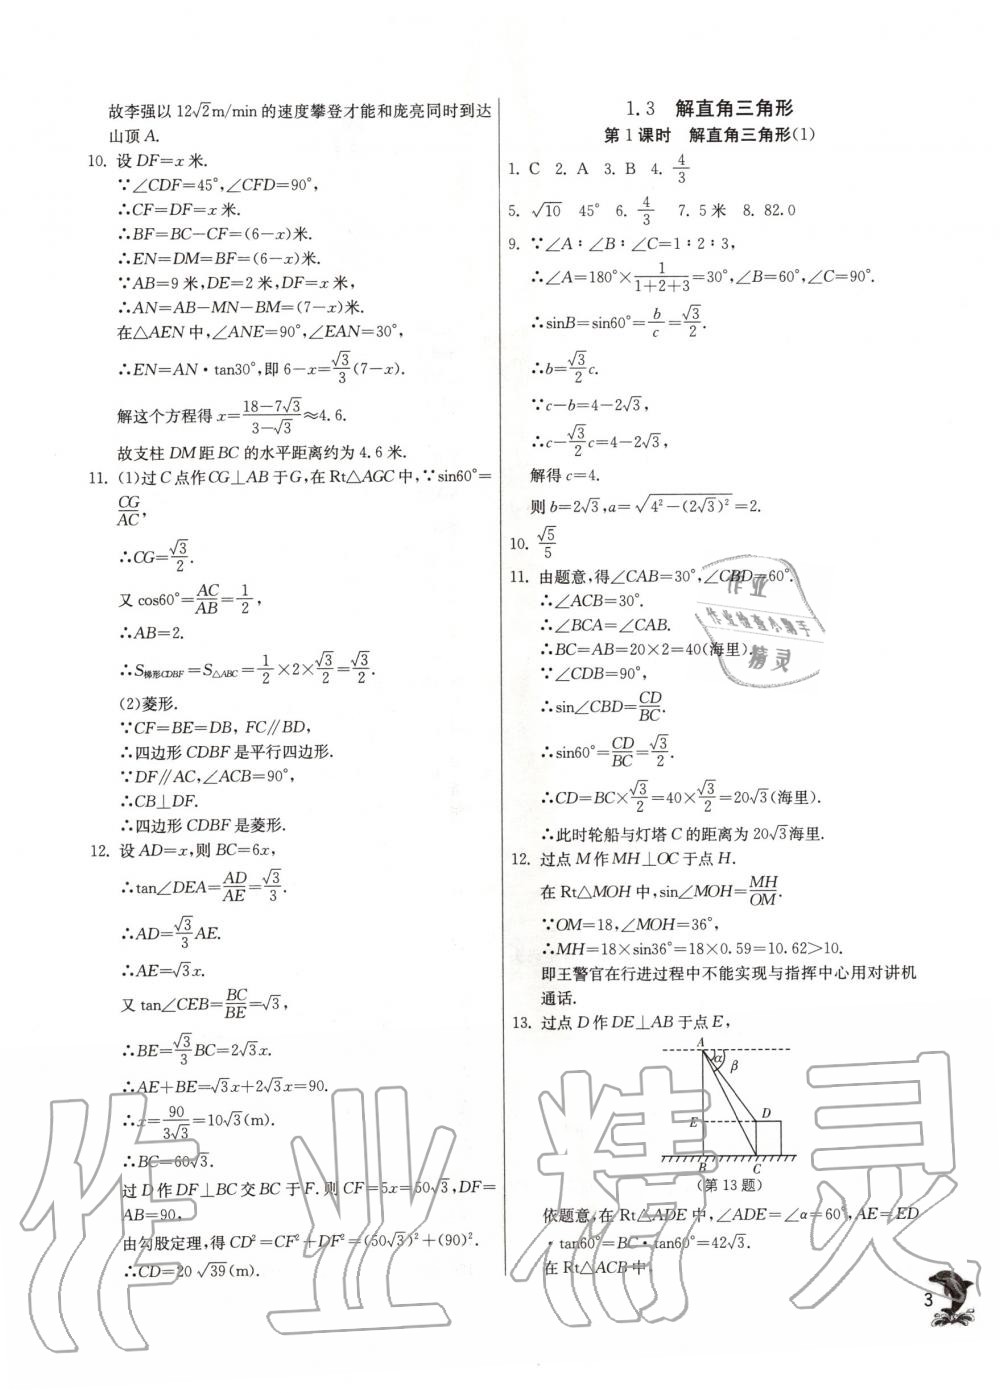 故李强以12√2m/min的速度攀登才能和庞亮同时到达
山顶A.
10. 设DF=x米.
∵∠CDF=45°,∠CFD=90°,
∴CF=DF=x米.
∴BF=BC-CF=(6-x)米.
∴EN=DM=BF=(6-x)米.
∵AB=9米,DE=2米,DF=x米,
∴AN=AB-MN-BM=(7-x)米.
在△AEN中,∠ANE=90°,∠EAN=30°,
∴EN=AN·tan30°,即6-x=√3/3(7-x).
解这个方程得x=(18-7√3)/(3-√3)≈4.6.
故支柱DM距BC的水平距离约为4.6米.
11. (1)过C点作CG⊥AB于G,在Rt△AGC中,∵sin60°=
CG/AC,
∴CG=√3/2.
又cos60°=AC/AB=1/2,
∴AB=2.
∴S梯形CDBF=S△ABC=1/2×2×√3/2=√3/2.
(2)菱形.
∵CF=BE=DB, FC∥BD,
∴四边形CDBF是平行四边形.
∵DF∥AC,∠ACB=90°,
∴CB⊥DF.
∴四边形CDBF是菱形.
12. 设AD=x,则BC=6x,
∴tan∠DEA=AD/AE=√3/3.
∴AD=√3/3AE.
∴AE=√3x.
又tan∠CEB=BC/BE=√3,
∴BE=√3/3BC=2√3x.
∴AE+BE=√3x+2√3x=90.
∴x=90/3√3=10√3(m).
∴BC=60√3.
过D作DF⊥BC交BC于F.则CF=5x=50√3,DF=
AB=90,
由勾股定理,得CD²=CF²+DF²=(50√3)²+(90)².
∴CD=20√39(m).
1.3 解直角三角形
第1课时 解直角三角形(1)
1. C 2. A 3. B 4. 4/3
5. √10 45° 6. 4/3 7. 5米 8. 82.0
9. ∵∠A∶∠B∶∠C=1∶2∶3,
∴∠A=180°×1/(1+2+3)=30°,∠B=60°,∠C=90°.
∴sinB=sin60°=b/c=√3/2.
∴b=√3/2c.
∵c-b=4-2√3,
∴c-√3/2c=4-2√3,
解得c=4.
则b=2√3,a=√(4²-(2√3)²)=2.
10. √5/5
11. 由题意,得∠CAB=30°,∠CBD=60°.
∴∠ACB=30°.
∴∠BCA=∠CAB.
∴BC=AB=20×2=40(海里).
∵∠CDB=90°,
∴sin∠CBD=CD/BC.
∴sin60°=CD/BC=√3/2.
∴CD=BC×√3/2=40×√3/2=20√3(海里).
∴此时轮船与灯塔C的距离为20√3海里.
12. 过点M作MH⊥OC于点H.
在Rt△MOH中,sin∠MOH=MH/OM.
∵OM=18,∠MOH=36°,
∴MH=18×sin36°=18×0.59=10.62>10.
即王警官在行进过程中不能实现与指挥中心用对讲机
通话.
13. 过点D作DE⊥AB于点E,
A
α
β
E
D
B
C
(第13题)
依题意,在Rt△ADE中,∠ADE=∠α=60°,AE=ED
·tan60°=BC·tan60°=42√3.
在Rt△ACB中,
3
作业
作业检查小帮手
精灵
作业精灵